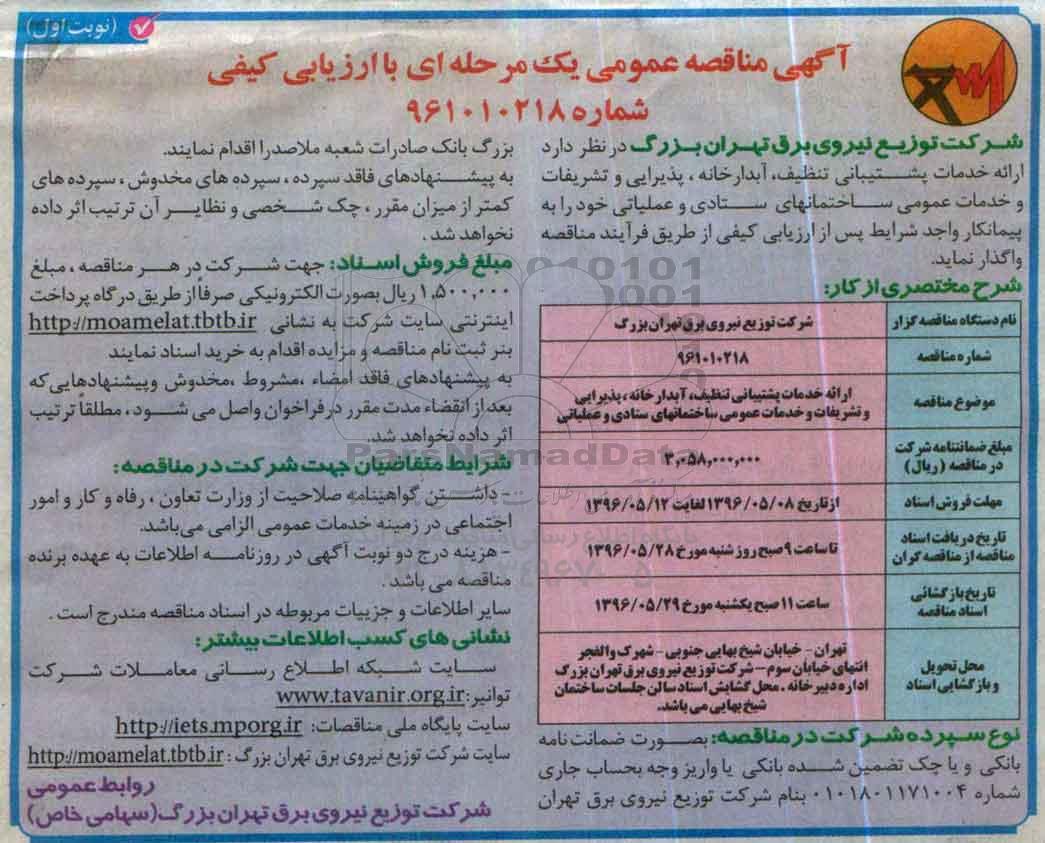 (نوبت اول)
آگهی مناقصه عمومی یک مرحله ای با ارزیابی کیفی
شماره ۹۶۱۰۱۰۲۱۸
شرکت توزیع نیروی برق تهران بزرگ در نظر دارد
ارائه خدمات پشتیبانی تنظیف، آبدارخانه ، پذیرایی و تشریفات
و خدمات عمومی ساختمانهای ستادی و عملیاتی خود را به
پیمانکار واجد شرایط پس از ارزیابی کیفی از طریق فرآیند مناقصه
واگذار نماید.
شرح مختصری از کار:
نام دستگاه مناقصه گزار
شرکت توزیع نیروی برق تهران بزرگ
شماره مناقصه
۹۶۱۰۱۰۲۱۸
موضوع مناقصه
ارائه خدمات پشتیبانی تنظیف، آبدارخانه ، پذیرایی
و تشریفات و خدمات عمومی ساختمانهای ستادی و عملیاتی
مبلغ ضمانتنامه شرکت
در مناقصه (ریال)
۳,۰۵۸,۰۰۰,۰۰۰
مهلت فروش اسناد
از تاریخ ۱۳۹۶/۰۵/۰۸ لغایت ۱۳۹۶/۰۵/۱۲
تاریخ دریافت اسناد
مناقصه از مناقصه گران
تا ساعت ۹ صبح روز شنبه مورخ ۱۳۹۶/۰۵/۲۸
تاریخ بازگشائی
اسناد مناقصه
ساعت ۱۱ صبح یکشنبه مورخ ۱۳۹۶/۰۵/۲۹
محل تحویل
و بازگشایی اسناد
تهران - خیابان شیخ بهایی جنوبی - شهرک والفجر
انتهای خیابان سوم – شرکت توزیع نیروی برق تهران بزرگ
اداره دبیرخانه . محل گشایش اسناد سالن جلسات ساختمان
شیخ بهایی می باشد.
نوع سپرده شرکت در مناقصه: بصورت ضمانت نامه
بانکی و یا چک تضمین شده بانکی یا واریز وجه بحساب جاری
شماره ۰۱۰۱۸۰۱۱۷۱۰۰۴ بنام شرکت توزیع نیروی برق تهران
بزرگ بانک صادرات شعبه ملاصدرا اقدام نمایند.
به پیشنهادهای فاقد سپرده ، سپرده های مخدوش ، سپرده های
کمتر از میزان مقرر ، چک شخصی و نظایر آن ترتیب اثر داده
نخواهد شد .
مبلغ فروش اسناد: جهت شرکت در هر مناقصه ، مبلغ
۱,۵۰۰,۰۰۰ ریال بصورت الکترونیکی صرفاً از طریق درگاه پرداخت
اینترنتی سایت شرکت به نشانی http://moamelat.tbtb.ir
بنر ثبت نام مناقصه و مزایده اقدام به خرید اسناد نمایند
به پیشنهادهای فاقد امضاء ،مشروط ،مخدوش وپیشنهادهایی که
بعد از انقضاء مدت مقرر در فراخوان واصل می شود ، مطلقاً ترتیب
اثر داده نخواهد شد.
شرایط متقاضیان جهت شرکت در مناقصه:
- داشتن گواهینامه صلاحیت از وزارت تعاون ، رفاه و کار و امور
اجتماعی در زمینه خدمات عمومی الزامی می‌باشد.
- هزینه درج دو نوبت آگهی در روزنامه اطلاعات به عهده برنده
مناقصه می باشد .
سایر اطلاعات و جزییات مربوطه در اسناد مناقصه مندرج است .
نشانی های کسب اطلاعات بیشتر:
سایت شبکه اطلاع رسانی معاملات شرکت
توانیر: www.tavanir.org.ir
سایت پایگاه ملی مناقصات: http://iets.mporg.ir
سایت شرکت توزیع نیروی برق تهران بزرگ : http://moamelat.tbtb.ir
روابط عمومی
شرکت توزیع نیروی برق تهران بزرگ (سهامی خاص)
ParsNamadData